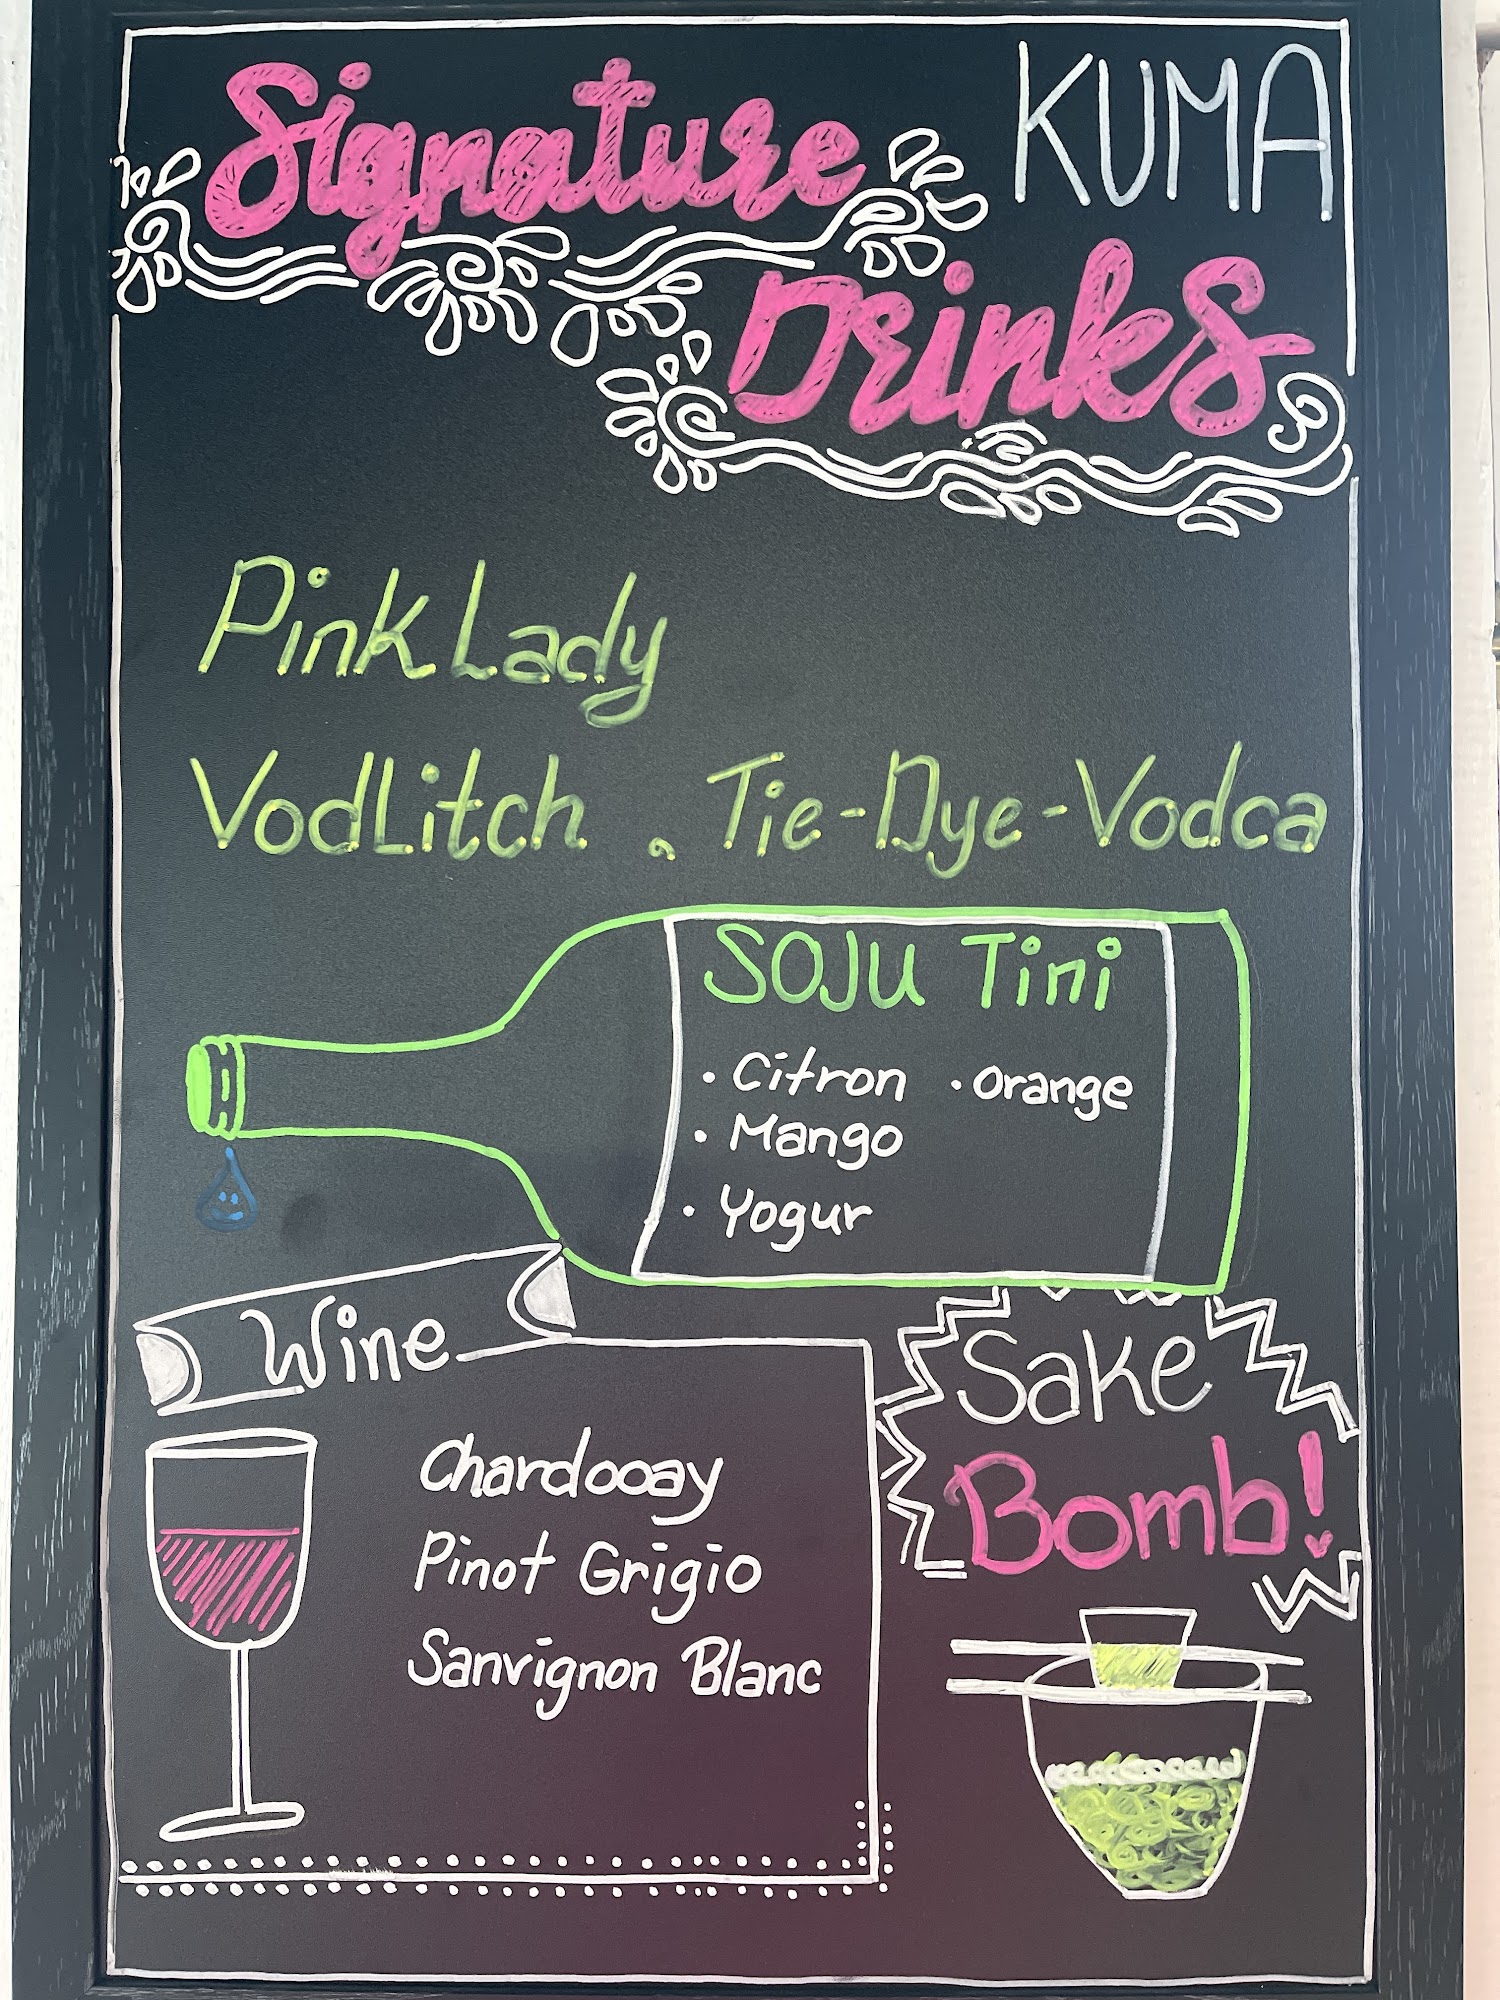 Signature KUMA
Drinks
Pink Lady
VodLitch . Tie-Dye-Vodca
SOJU Tini
· Citron · Orange
· Mango
· Yogur
Wine
Chardooay
Pinot Grigio
Sanvignon Blanc
Sake
Bomb!